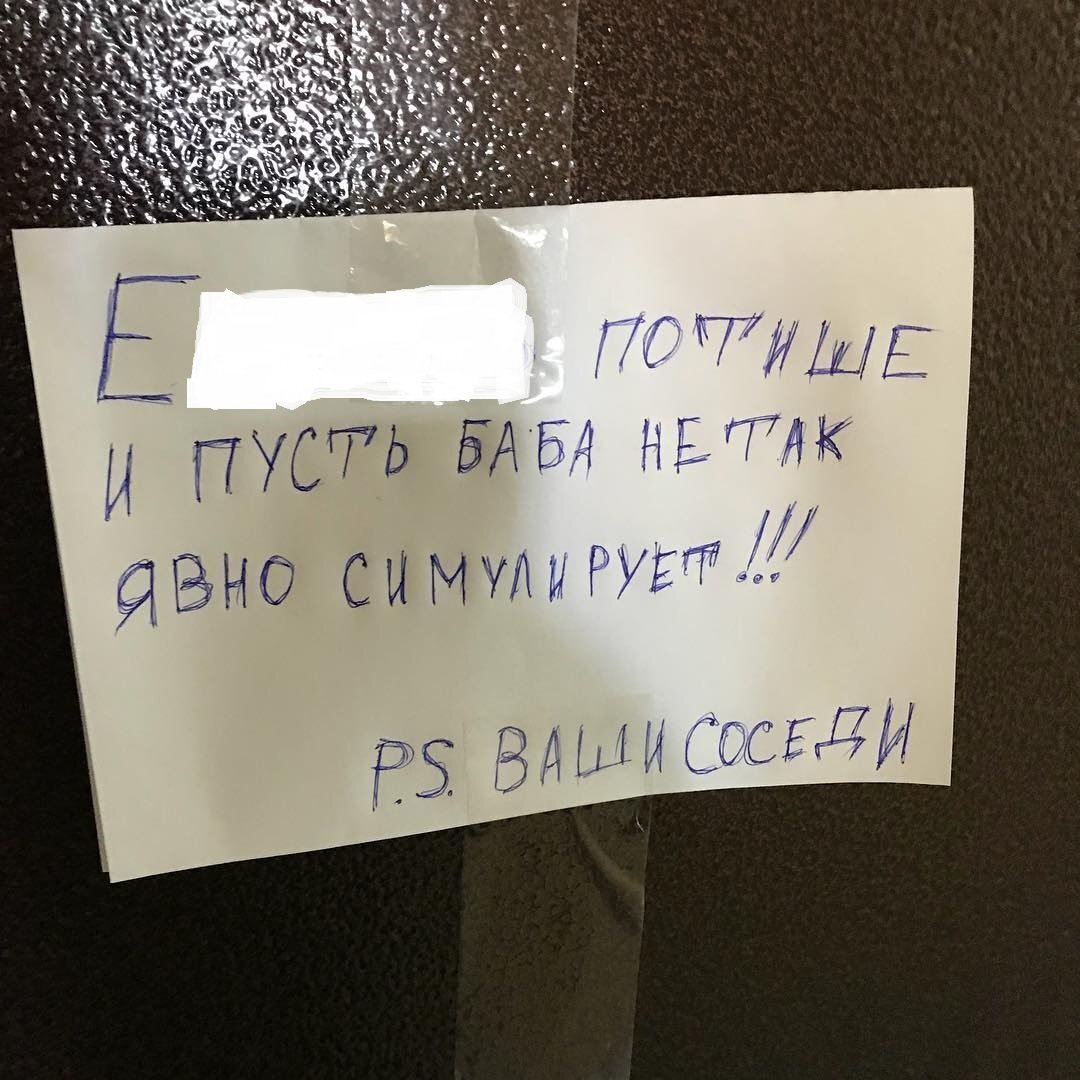 Е ПОТИШЕ
И ПУСТЬ БАБА НЕ ТАК
ЯВНО СИМУЛИРУЕТ!!!
P.S. ВАШИ СОСЕДИ